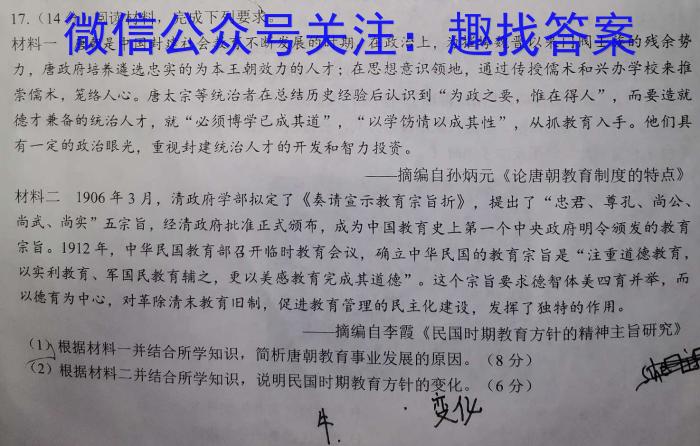 17.(14分)阅读材料，完成下列要求。
微信公众号关注：趣找答案
材料一 是中国封建社会教育不断发展的时期。在政治上，为 魏晋以来门阀士族的残余势
力，唐政府培养遴选忠实的为本王朝效力的人才；在思想意识领地，通过传授儒术和兴办学校来推
崇儒术，笼络人心。唐太宗等统治者在总结历史经验后认识到“为政之要，惟在得人”，而要造就
德才兼备的统治人才，就“必须博学已成其道”，“以学饬情以成其性”，从抓教育入手。他们具
有一定的政治眼光，重视封建统治人才的开发和智力投资。
——摘编自孙炳元《论唐朝教育制度的特点》
材料二 1906年3月，清政府学部拟定了《奏请宣示教育宗旨折》，提出了“忠君、尊孔、尚公、
尚武、尚实”五宗旨，经清政府批准正式颁布，成为中国教育史上第一个中央政府明令颁发的教育
宗旨。1912年，中华民国教育部召开临时教育会议，确立中华民国的教育宗旨是“注重道德教育，
以实利教育、军国民教育辅之，更以美感教育完成其道德”。这个宗旨要求德智体美四育并举，而
以德育为中心，对革除清末教育旧制，促进教育管理的民主化建设，发挥了独特的作用。
——摘编自李霞《民国时期教育方针的精神主旨研究》
(1)根据材料一并结合所学知识，简析唐朝教育事业发展的原因。（8分）
(2)根据材料二并结合所学知识，说明民国时期教育方针的变化。（6分）
变化